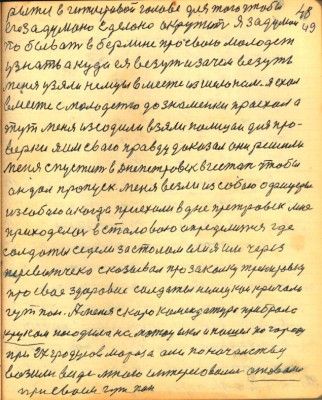 48
49
рыжи в гитлеровой голове для того чтобы
его задумано сделано окружит. Я задумал
побывать в берлине про свою молодеж
узнать а куда ея везут и зачем везуть
меня узяли немцы в месте из шпионам. я ехал
вместе с молодежю до знаменки проехал а
тут меня изсодили взяли полицаи для про-
верки я им свою правду доказал они решили
меня спустит в Днепетровск в гестап чтобы
он дал пропуск меня везли из собою офицеры
из собою а когда приехали в дне петровск мне
приходелос в сталовою определится где
солдаты седели за столом ели я им через
переводчеко сказывал про закалку тренировку
про свае здоровие солдаты немецкои кричали
гут пан. А меня скоро комендатуро пребрало
на и по городу
при 27 градусов мороза они по начальству
возили виде много интересовало
при своем гут пан